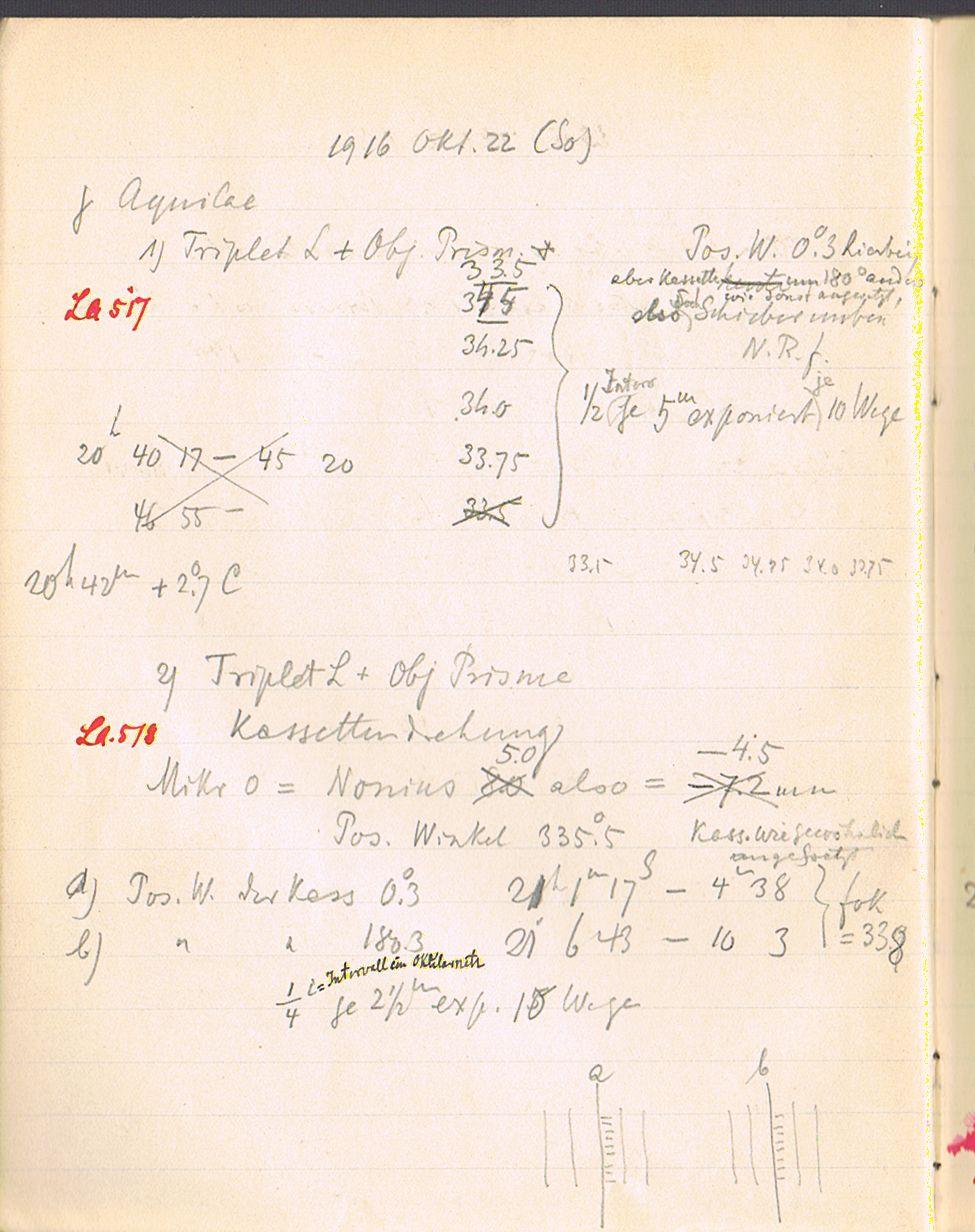 1916 Okt. 22 (So)
γ Aquilae
1) Triplet L + Obj. Prism.
Pos. W. 0°.3 hierbei
aber Kassette um 180° anders
wie sonst angesetzt,
also Schieber unten
N.R. f.
La 517
33.5
34.5
34.25
34.0
33.75
33.5
Interv je
1/2 (je 5m exponiert) 10 Wege
20h 40 17 – 45 20
46 55 –
20h 42m + 2°.7 C
33.5 34.5 34.25 34.0 33.75
2) Triplet L + Obj Prisme
La. 518 Kassettendrehung
5.0 –4.5
Mikr 0 = Nonius 8.0 also = –7.2 mm
Pos. Winkel 335°.5 Kass. wie gewöhnlich
angesetzt
a) Pos. W. der Kass 0°.3 21h 1m 17s – 4m 38
b) " " 180.3 21 6 43 – 10 3
fok
= 338
i = Intervall im Okularnetz
1/4 je 2 1/2m exp. 15 Wege
a b